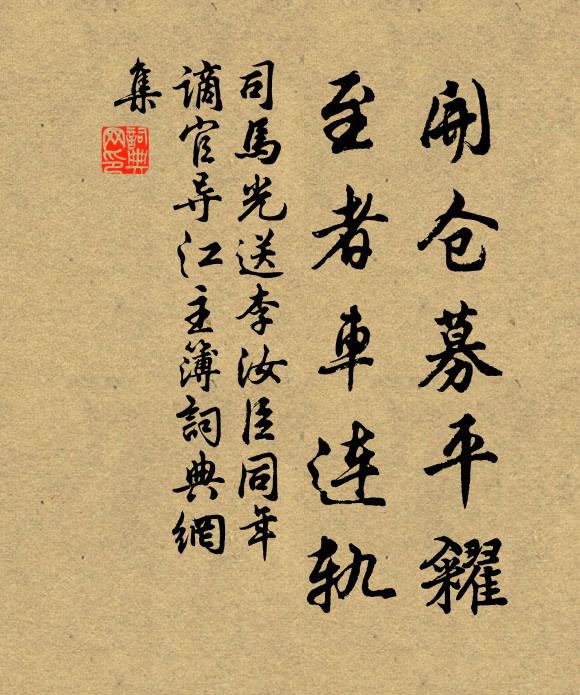 開仓募平糴
至者車連軌
司馬光送李汝臣同年
謫官导江主簿詞典網
集
詞典
网印